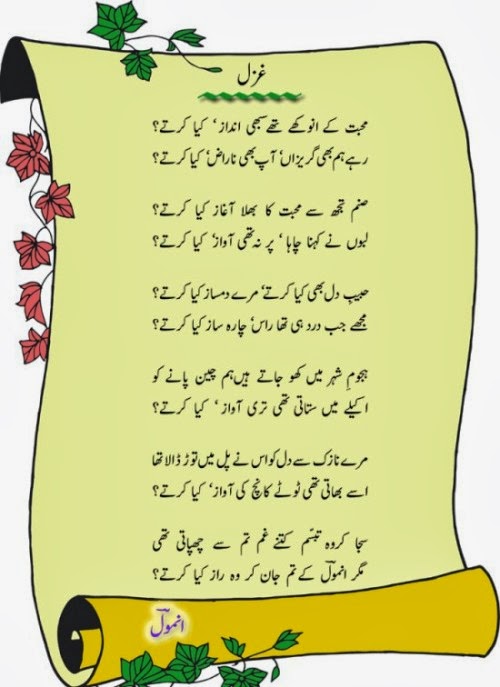 غزل
محبت کے انوکھے تھے سبھی انداز، کیا کرتے؟
رہے ہم بھی گریزاں، آپ بھی ناراض، کیا کرتے؟
صنم تجھ سے محبت کا بھلا آغاز کیا کرتے؟
لبوں نے کہنا چاہا، پر نہ تھی آواز، کیا کرتے؟
حبیبِ دل بھی کیا کرتے، مرے دمساز کیا کرتے؟
مجھے جب درد ہی تھا راس، چارہ ساز کیا کرتے؟
ہجومِ شہر میں کھو جاتے ہیں ہم چین پانے کو
اکیلے میں ستاتی تھی تری آواز، کیا کرتے؟
مرے نازک سے دل کو اس نے پل میں توڑ ڈالا تھا
اسے بھاتی تھی ٹوٹے کانچ کی آواز، کیا کرتے؟
سجا کر وہ تبسّم کتنے غم تم سے چھپاتی تھی
مگر انمولؔ کے تم جان کر وہ راز کیا کرتے؟
انمولؔ